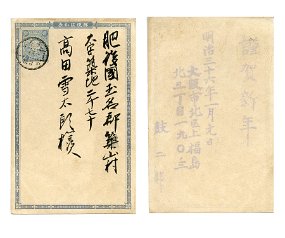 肥後國玉名郡築山村
大字築地二千七十
高田雪太郎様
謹賀新年
明治三十六年一月元日
大阪市北区上福島
北三丁目一九〇